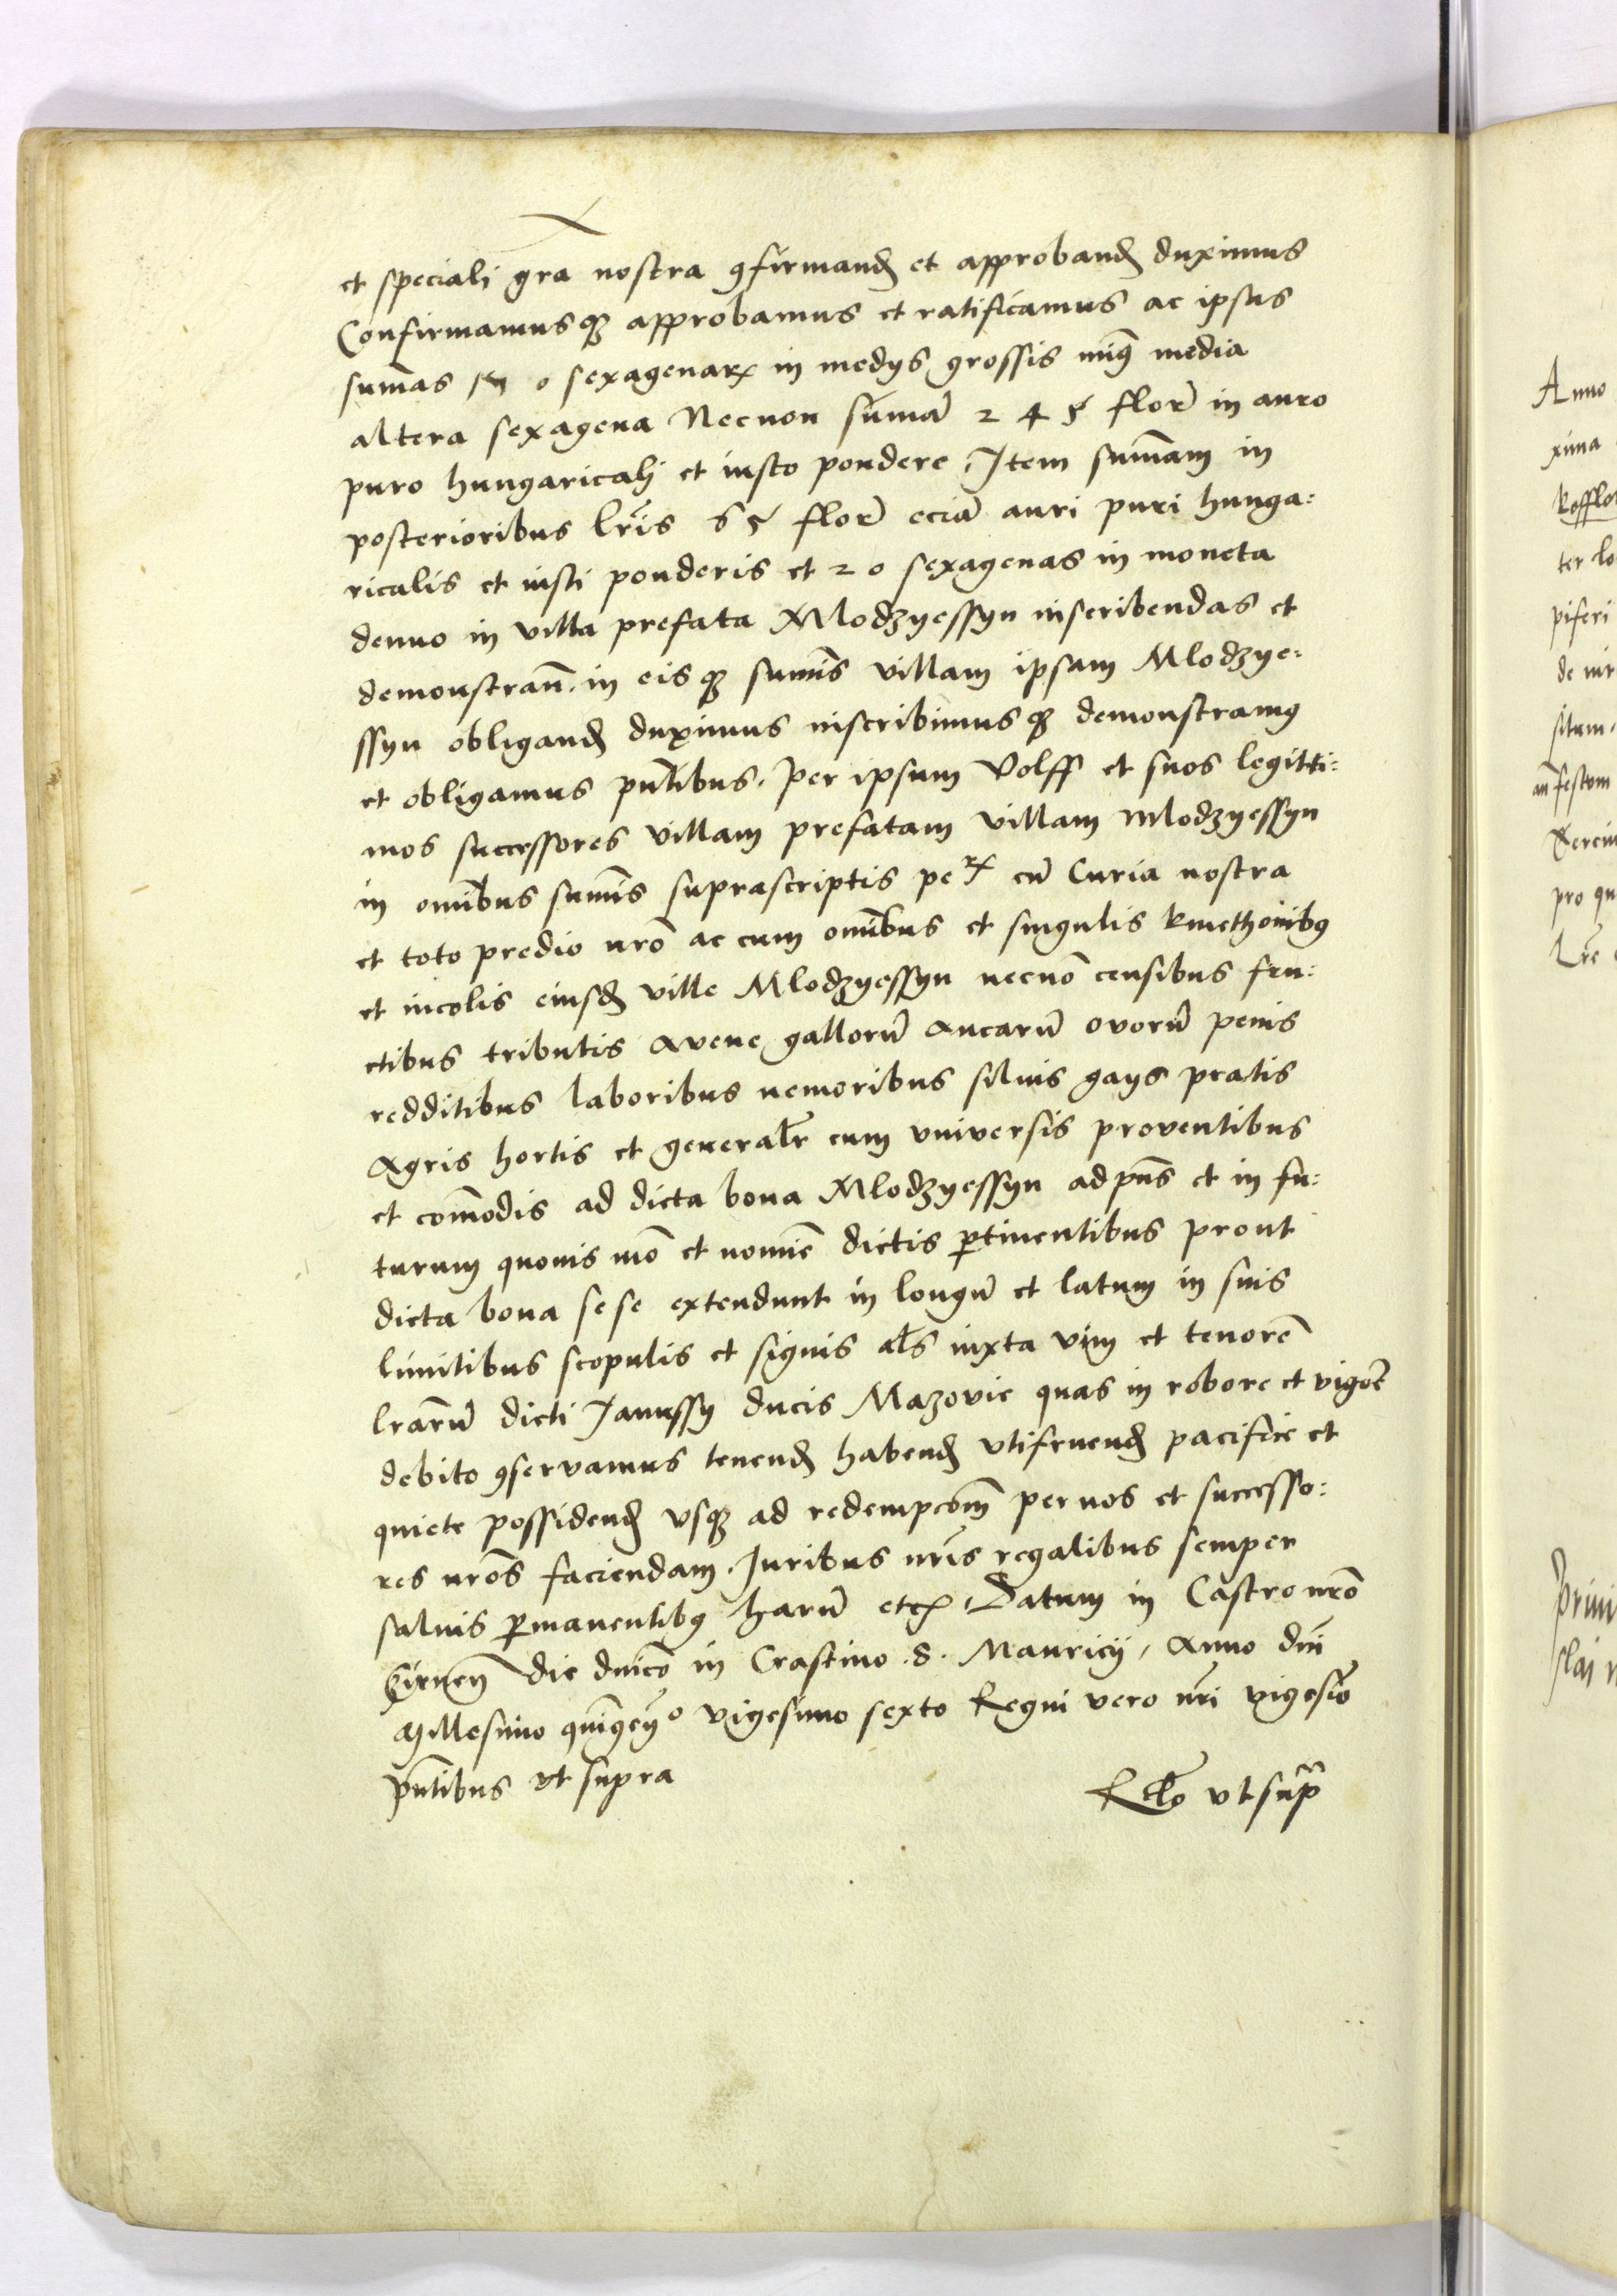 et speciali gra nostra ꝯfirmand et approband duximus
Confirmamusqꝫ approbamus et ratificamus ac ipsas
sumas sexagenaꝝ in medys grossis minꝰ media
altera sexagena Necnon sumā 2 4 5 florē in auro
puro hungaricali et iusto pondere. Item sumam in
posterioribus lris 65 florē eciā auri puri hunga:
ricalis et iusti ponderis et 20 sexagenas in moneta
denuo in villa prefata Mlodzyessyn inscribendas et
demonstran̄. in eisqꝫ sumis villam ipsam Mlodzye:
ssyn obligand duximus inscribimusqꝫ demonstramꝰ
et obligamus pn̄tibus. Per ipsum Volff et suos legitti:
mos successores villam prefatam villam Mlodzyessyn
in omībus sumis suprascriptis cū Curia nostra
et toto predio nrō ac cum omībus et singulis kmethonibꝰ
et incolis eiusd ville Mlodzyessyn necnō censibus fru:
ctibus tributis avene gallorū aucarū ovorū penis
redditibus laboribus nemoribus siluis gays pratis
Agris hortis et generalr̄ cum vniversis proventibus
et comodis ad dicta bona Mlodzyessyn ad pn̄s et in fu:
turum quouis mō et nomīe dictis ꝑtinentibus prout
dicta bona sese extendunt in longū et latum in suis
limitibus scopulis et signis als iuxta vim et tenorē
lrarū dicti Janussy ducis Mazovie quas in robore et vigorē
debito ꝯservamus tenend habend vtifruend pacifice et
quiete possidend vsqꝫ ad redempcōm per nos et successo:
res nrōs faciendam. Iuribus nris regalibus semper
saluis ꝑmanentibꝰ harū etcꝫ. Datum in Castro nrō
die dnico in Crastino .S. Mauricij, Anno dnī
Millesimo quingen̄º vigesimo sexto Regni vero nri vigesīo
pn̄tibus vt supra
Rclo vt sup̄
Anno
xima
ter lo
piferi
de nr
situm
an festum
pro qu
Lre